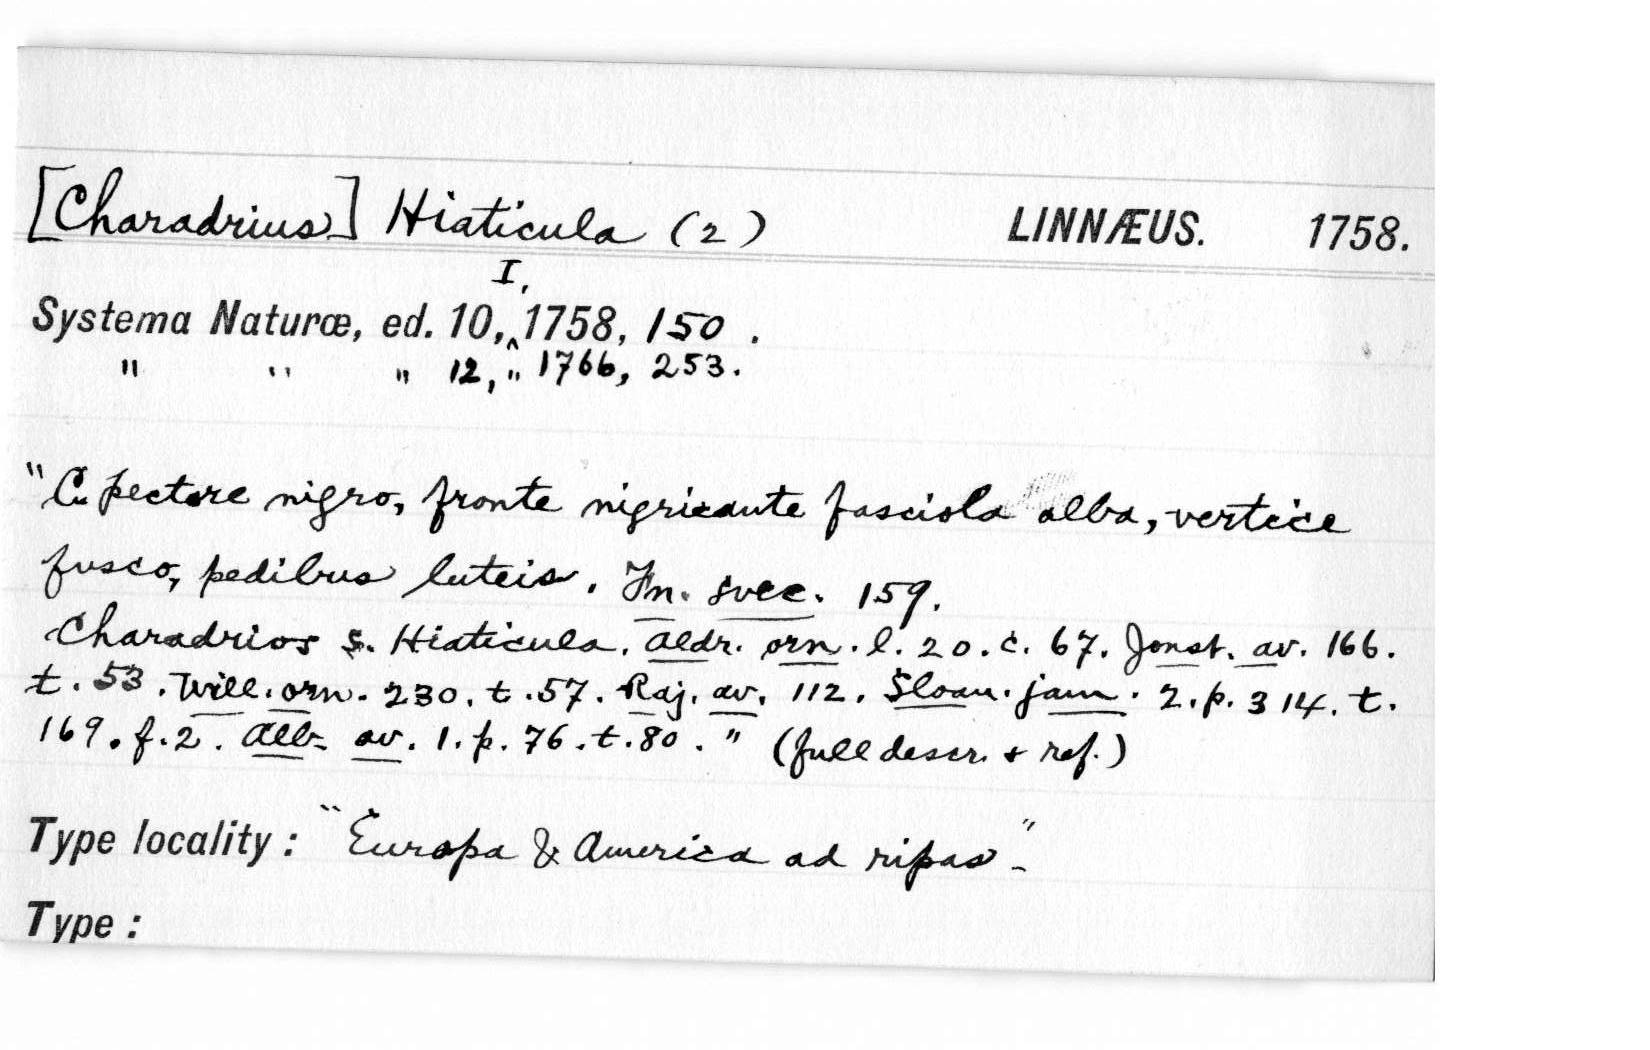 [Charadrius] Hiaticula (2) LINNÆUS. 1758.
I,
Systema Naturæ, ed. 10,‸1758, 150 .
" " " 12, " 1766, 253.
"C. pectore nigro, fronte nigricante fasciola alba, vertice
fusco, pedibus luteis. Fn. svec. 159.
Charadrios s. Hiaticula. Aldr. orn. l. 20. c. 67. Jonst. av. 166.
t. 53. Will. orn. 230. t. 57. Raj. av. 112. Sloan. jam. 2. p. 314. t.
169. f. 2. Alb. av. 1. p. 76. t. 80. " (full descr. + ref.)
Type locality : "Europa & America ad ripas"-
Type :